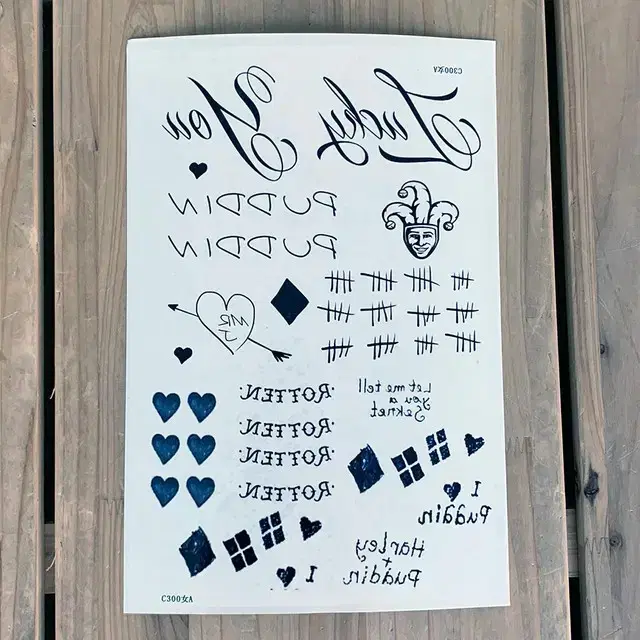 C300女A
Lucky You
PUDDIN
PUDDIN
MR
J
Let me tell
you a
Sekret
ROTTEN
ROTTEN
ROTTEN
ROTTEN
I
Puddin
Harley
+
Puddin
I
C300女A